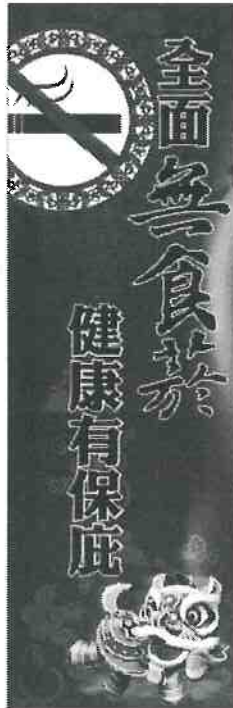 全面無食菸
健康有保庇